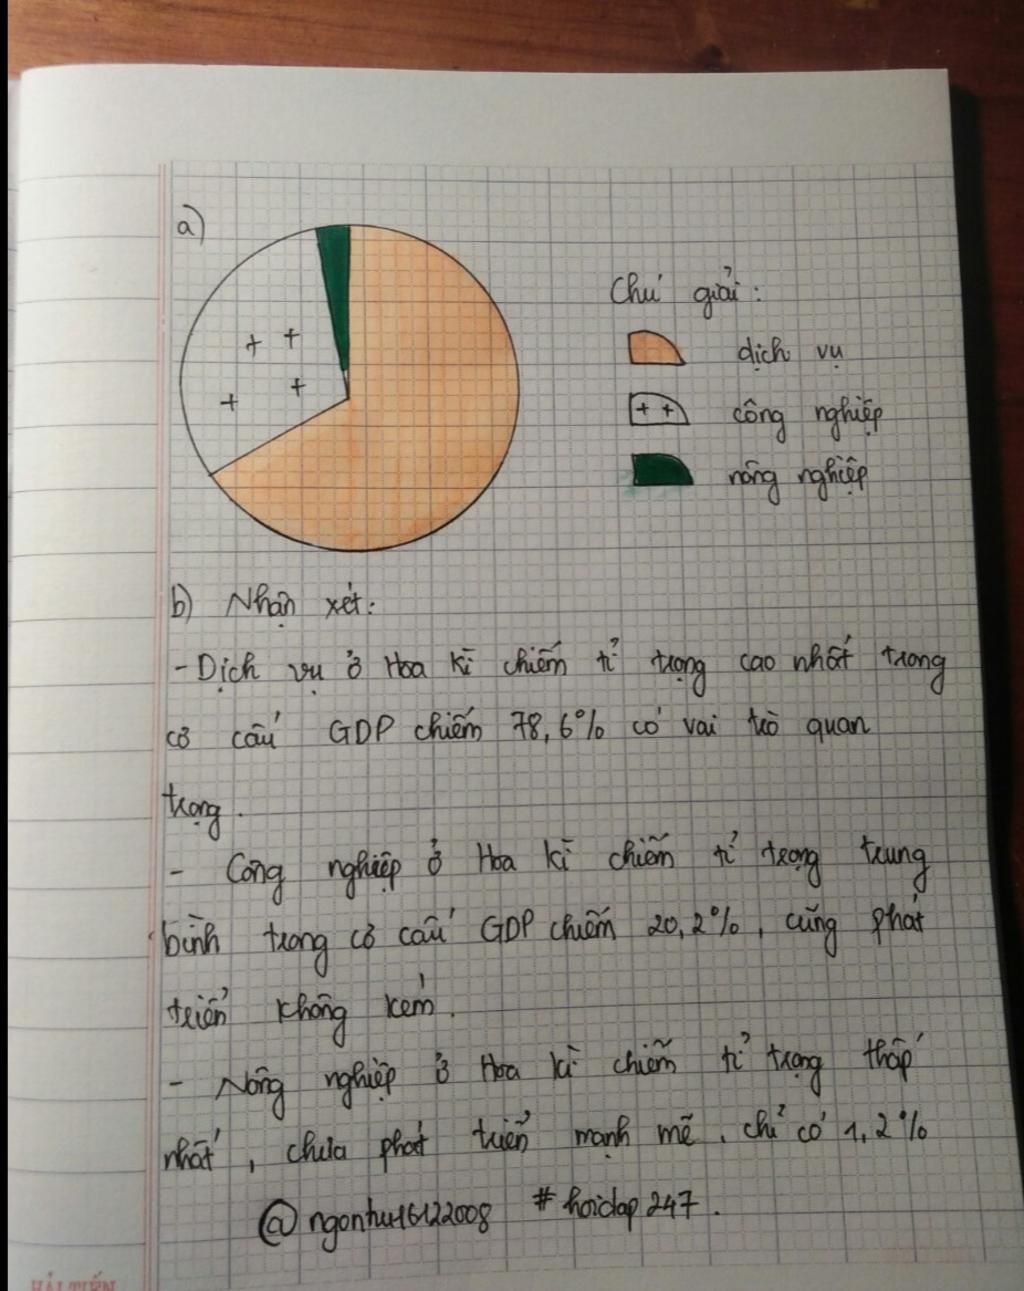 a)
Chú giải:
dịch vụ
công nghiệp
nông nghiệp
b) Nhận xét:
- Dịch vụ ở Hoa Kì chiếm tỉ trọng cao nhất trong
cơ cấu GDP chiếm 78,6% có vai trò quan
trọng.
- Công nghiệp ở Hoa Kì chiếm tỉ trọng trung
bình trong cơ cấu GDP chiếm 20,2%, cũng phát
triển không kém.
- Nông nghiệp ở Hoa Kì chiếm tỉ trọng thấp
nhất, chưa phát triển mạnh mẽ, chỉ có 1,2%
@ngonhu16122008 # hoidap247.
HẢI TIẾN